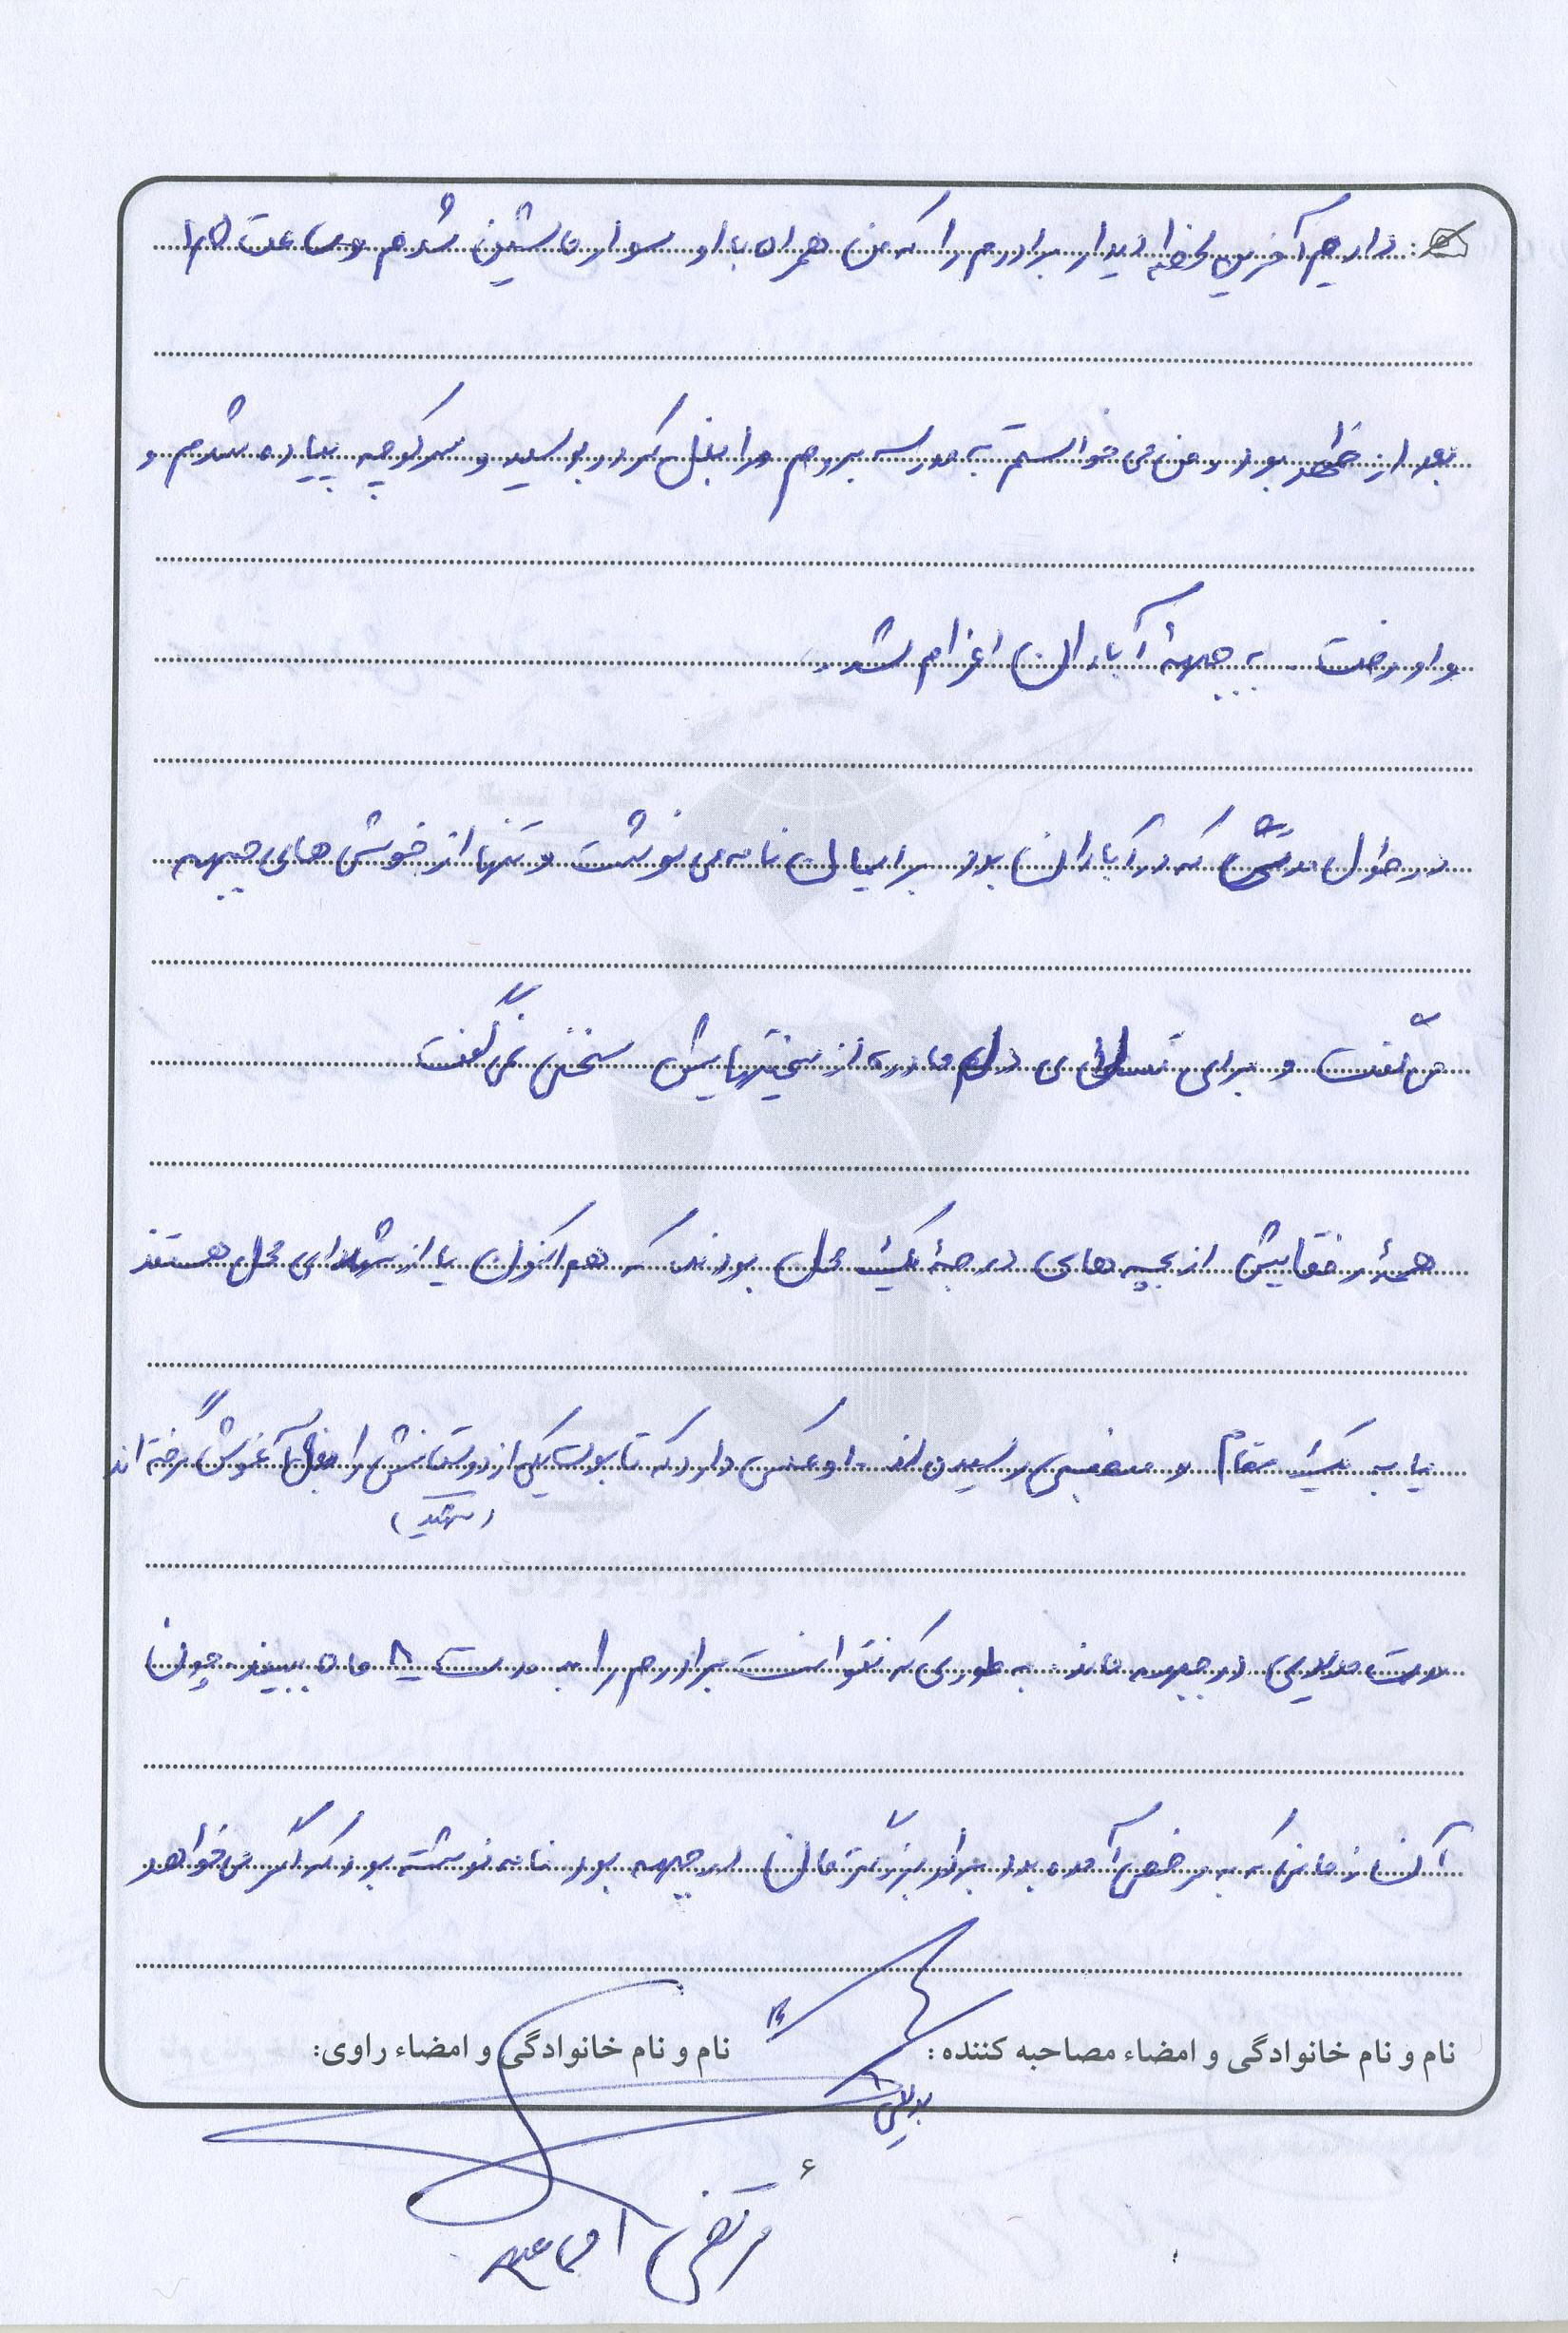 داریم آخرین لحظه دیدار برادرم را که من همراه با او سوار ماشین شدم و ساعت ۱/۵
بعد از ظهر بود و من می خواستم به مدرسه بروم مرا بغل کرد و بوسید و سر کوچه پیاده شدم و
و او رفت به جبههٔ آبادان اعزام شد.
در طول مدتی که در آبادان بود برایمان نامه می نوشت و تنها از خوشی های جبهه
می گفت و برای تسلای دل مادرم از سختیهایش سخنی نمی گفت
همهٔ رفقایش از بچه های درجهٔ یک محل بودند که هم اکنون یا از شهدای محل هستند
یا به یک مقام و منصبی رسیدن اند او عکسی دارد که تابوت یکی از دوستانش را در آغوش گرفته اند
(شهید)
مدت مدیدی در جبهه ماند به طوری که نتوانست برادرم را به مدت ۸ ماه ببیند چون
آن زمانی که به مرخصی آمده بود برادر بزرگترمان در جبهه بود نامه نوشته بود که اگر می خواهد
نام و نام خانوادگی و امضاء مصاحبه کننده: نام و نام خانوادگی و امضاء راوی:
۶
مرتضی